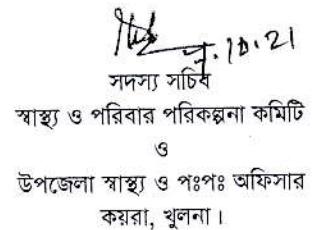 সদস্য সচিব
স্বাস্থ্য ও পরিবার পরিকল্পনা কমিটি
ও
উপজেলা স্বাস্থ্য ও পঃপঃ অফিসার
কয়রা, খুলনা।